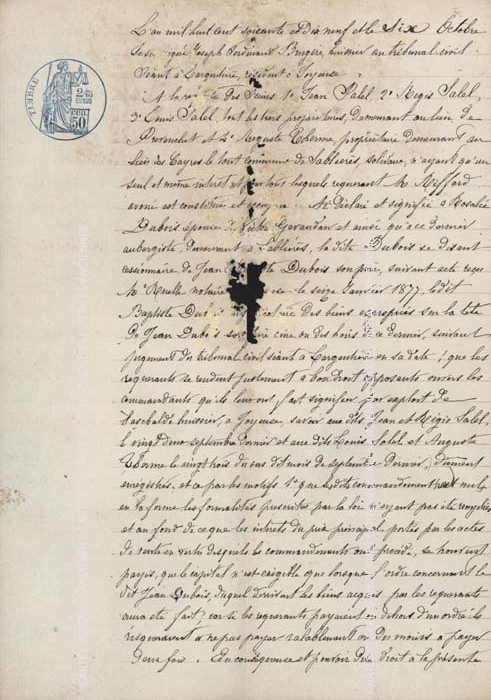 L'an mil huit cent soixante et dix neuf et le Six Octobre
Joseph Ferdinand Brugère huissier au tribunal civil
séant à Largentière, résident à Joyeuse
TIMBRE
50
A la req des Sieurs 1° Jean Salel, 2° Régis Salel
3° Louis Salel, tout les trois propriétaires, demeurant au lieu de
et 4° Auguste Therme, propriétaire demeurant au
lieu des Fayres le tout commune de Sablières, solidaire, n'ayant qu'un
seul et même intérêt et pour tous lesquels requérant Me Riffard
avoué est constitué et occupera. Ai déclaré et signifié à Rosalie
Dubois épouse de Victor Gévaudan et ainsi qu'à ce dernier
aubergiste, demeurant à Sablières, la dite Dubois se disant
cessionnaire de Jean Dubois son père, suivant acte reçu
Me Ruelle notaire le seize Janvier 1877, ledit
Baptiste Dub des biens expropriés sur la tête
de Jean Dubois son ou des hoirs de ce dernier, suivant
jugement du tribunal civil séant à Largentière en sa date; que les
requérants se rendent justement à bon droit opposants envers les
commandants qu'ils leur ont fait signifier par exploit de
huissier, à Joyeuse, savoir aux dits, Jean et Régis Salel,
le vingt deux septembre dernier et aux dits Louis Salel et Auguste
Therme le vingt trois du susdit mois de septembre dernier, dûment
enregistrés, et ce par les motifs 1° que les dits commandements sont nuls
en la forme les formalités prescrites par la loi n'ayant pas été remplies
et au fond de ce que les intérêts du prix principal portés par les actes
de vente en vertu desquels les commandements ont précédé, se trouvent
payés, que le capital n'est exigible que lorsque l'ordre concernant le
dit Jean Dubois, duquel dérivent les biens acquis par les requérants
aura été fait; car si les requérants payaient en dehors d'un ordre ils
risqueraient à ne pas payer valablement ou du moins à payer
deux fois. En conséquence et pour voir dire droit à la présente